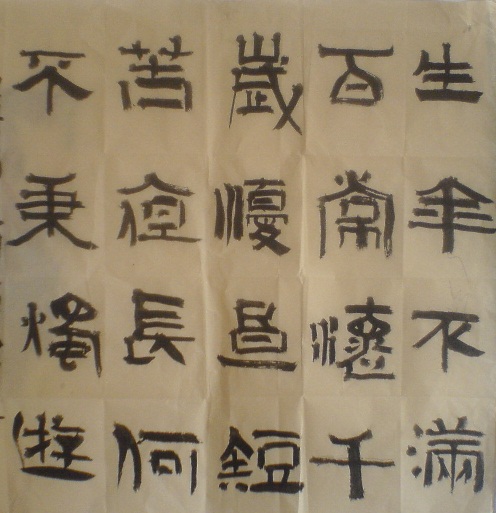 生年不滿
百常懷千
歲憂晝短
苦夜長何
不秉燭遊